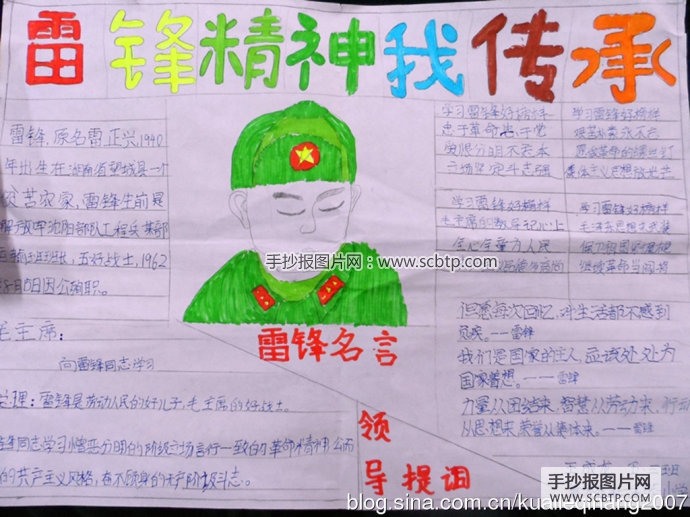 雷锋精神我传承
雷锋,原名雷正兴,1940
年出生在湖南省望城县一个
贫苦农家,雷锋生前是
解放军沈阳部队工程兵某部
运输连班长,五好战士,1962
年8月15日因公殉职。
学习雷锋好榜样
忠于革命忠于党
爱憎分明不忘本
立场坚定斗志强
学习雷锋好榜样
艰苦朴素永不忘
愿做革命的螺丝钉
集体主义思想放光芒
学习雷锋好榜样
毛主席的教导记心上
全心全意为人民
学习雷锋好榜样
毛泽东思想
保卫祖国
继续革命当闯将
手抄报图片网:www.scbtp.com
毛主席:
向雷锋同志学习
总理:雷锋是劳动人民的好儿子,毛主席的好战士。
雷锋同志学习憎爱分明的阶级立场言行一致的革命精神公而
的共产主义风格,奋不顾身的无产阶级斗志。
雷锋名言
但愿每次回忆,对生活都不感到
负疚。——雷锋
我们是国家的主人,应该处处为
国家着想。——雷锋
力量从团结来,智慧从劳动来,行动
从思想来,荣誉从集体来。——雷锋
领
导提词
班
小学
手抄报图片网
www.SCBTP.com
blog.sina.com.cn/kuaileqihang2007